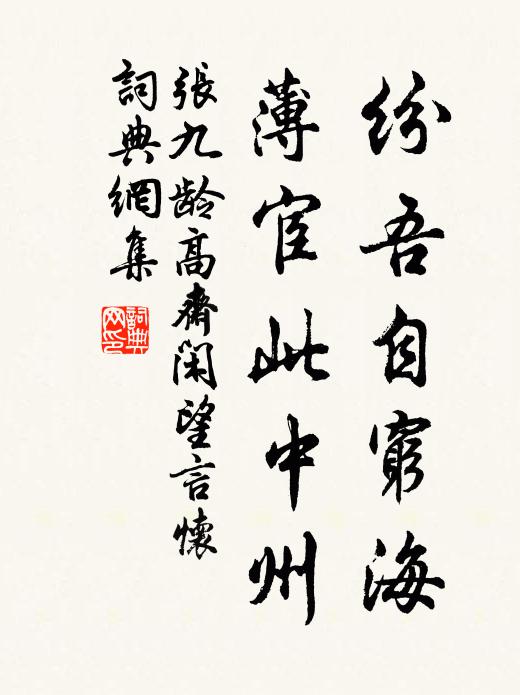 紛吾自窮海
薄宦此中州
張九龄高齋閑望言懷
詞典網集
詞典网印